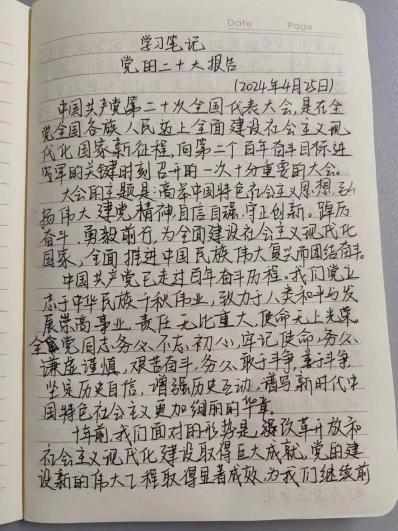 Date Page
学习笔记
党的二十大报告
(2024年4月25日)
中国共产党第二十次全国代表大会,是在全
党全国各族人民迈上全面建设社会主义现
代化国家新征程,向第二个百年奋斗目标进
军的关键时刻召开的一次十分重要的大会。
大会的主题是:高举中国特色社会主义思想,弘
扬伟大建党精神,自信自强,守正创新。踔厉
奋斗,勇毅前行,为全面建设社会主义现代化
国家、全面推进中国民族伟大复兴而团结奋斗。
中国共产党已走过百年奋斗历程。我们党立
志于中华民族千秋伟业,致力于人类和平与发
展崇高事业,责任无比重大,使命无上光荣。
全党同志务必不忘初心、牢记使命,务必
谦虚谨慎,艰苦奋斗,务必敢于斗争,善于斗争
坚定历史自信,增强历史主动,谱写新时代中
国特色社会主义更加绚丽的华章。
十年前,我们面对的形势是,改革开放和
社会主义现代化建设取得巨大成就,党的建
设新的伟大工程取得显著成效,为我们继续前